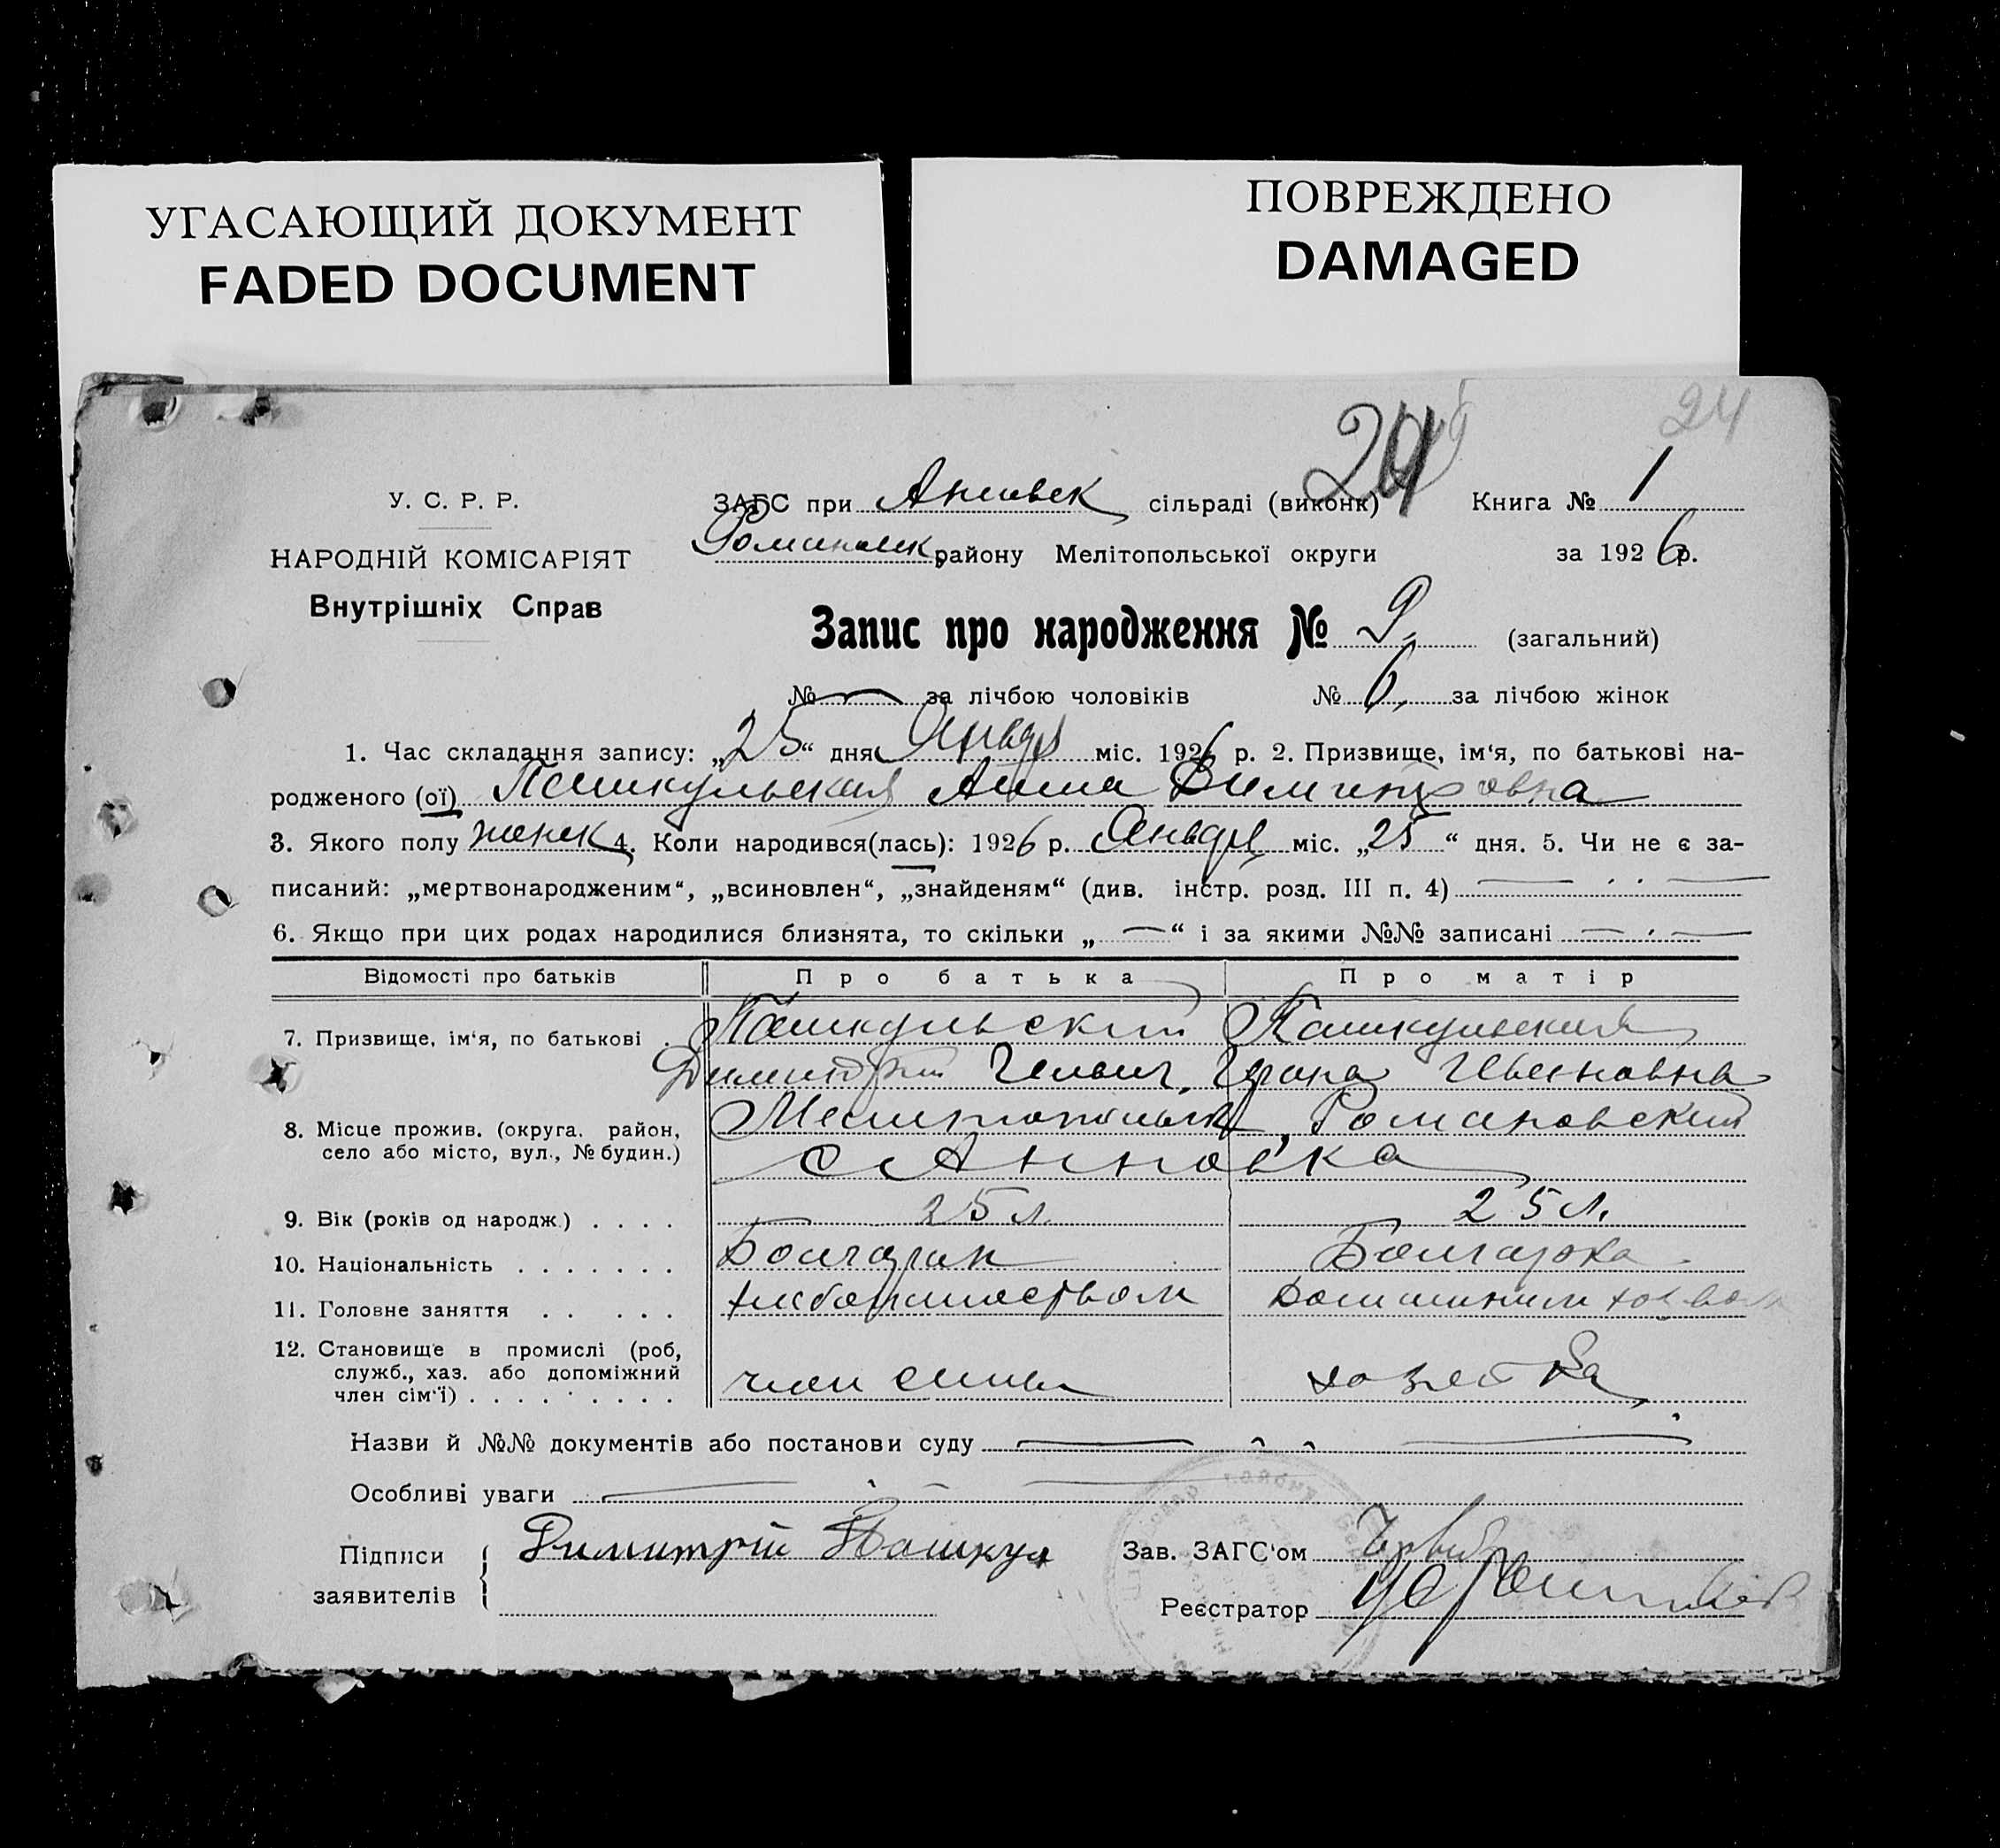 УГАСАЮЩИЙ ДОКУМЕНТ
FADED DOCUMENT
ПОВРЕЖДЕНО
DAMAGED
24
24
У. С. Р. Р.
НАРОДНІЙ КОМІСАРІЯТ
Внутрішніх Справ
ЗАГС при Ановск сільраді (виконк) Книга № 1
Романовск району Мелітопольської округи за 1926 р.
Запис про народження № 9 (загальний)
№ — за лічбою чоловіків № 6, за лічбою жінок
1. Час складання запису: „25“ дня Январ міс. 1926 р. 2. Призвище, ім‘я, по батькові на-
родженого (ої) Пашкульская Анна Димитровна
3. Якого полу женск 4. Коли народився(лась): 1926 р. Января міс. „25“ дня. 5. Чи не є за-
писаний: „мертвонародженим“, „всиновлен“, „знайденям“ (див. інстр. розд. III п. 4) —
6. Якщо при цих родах народилися близнята, то скільки „—“ і за якими №№ записані —
Відомості про батьків Про батька Про матір
7. Призвище, ім‘я, по батькові . Пашкульский Пашкульская
Димитрий Ильич, Ирина Ивановна
8. Місце прожив. (округа, район,
село або місто, вул., № будин.)
Мелитопольск, Романовский
с Анновка
9. Вік (років од народж.) . . . . 25 л. 25 л.
10. Національність . . . . . . . Болгарин Болгарка
11. Головне заняття . . . . . хлебопашеством Домашним
12. Становище в промислі (роб,
служб., хаз. або допоміжний
член сім‘ї) . . . . . . . . .
член семьи хозяйка
Назви й №№ документів або постанови суду —
Особливі уваги —
Підписи
заявителів
Димитрій Пашкул
Зав. ЗАГС‘ом
Реєстратор